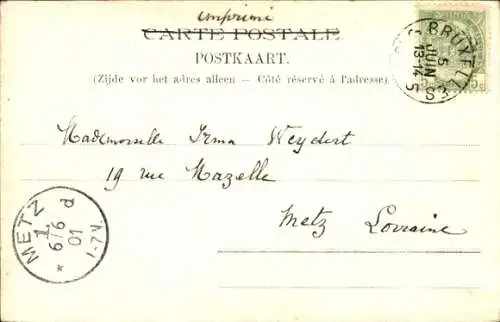 imprimé
CARTE POSTALE
POSTKAART.
(Zijde voor het adres alleen – Côté réservé à l'adresse)
BRUXELLES
5
JUIN
13-14
5
Mademoiselle Irma Weydert
19 rue Mazelle
Metz Lorraine
METZ
1
6/6
01
1-7V.
d
*